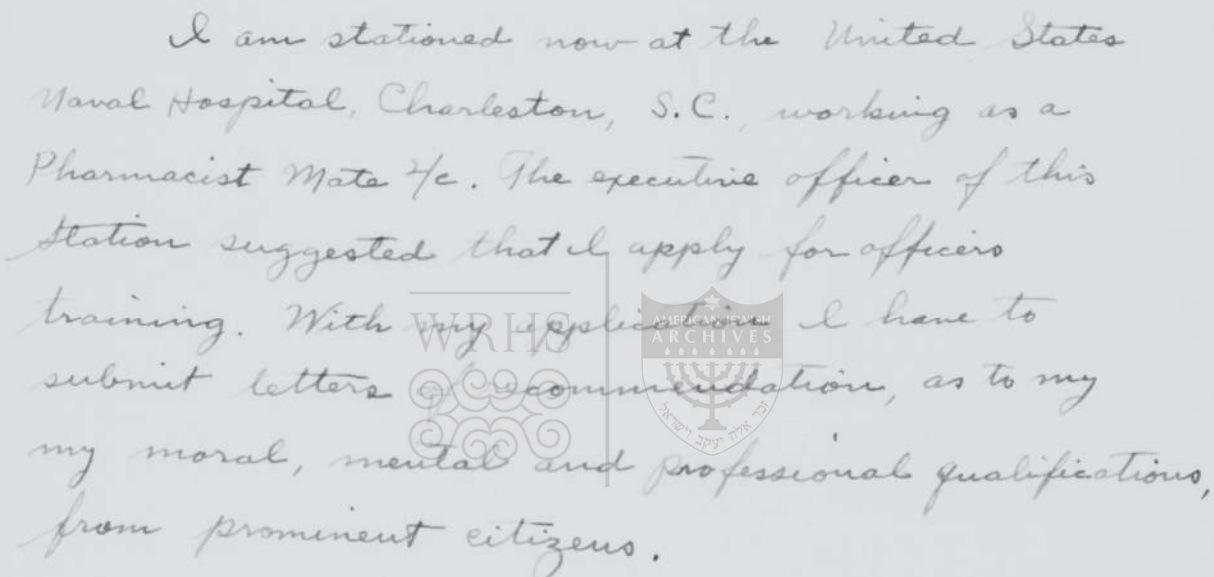 I am stationed now at the United States
Naval Hospital, Charleston, S.C., working as a
Pharmacist Mate 2/c. The executive officer of this
Station suggested that I apply for officers
training. With my application I have to
submit letters of recommendation, as to my
my moral, mental and professional qualifications,
from prominent citizens.
WRHS
AMERICAN JEWISH
ARCHIVES
זכר אלה יעקב וישראל